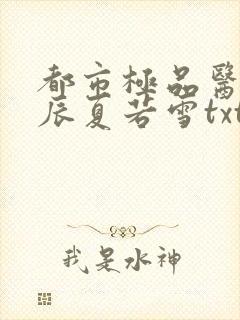 都市極品醫
辰夏若雪txt
我是水神